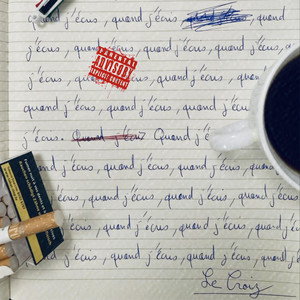 quand j'écris, quand j'écris, quand j'écris,
j'écris, quand j'écris, quand j'écris, quand j'écris,
quand j'écris, quand j'écris, quand
PARENTAL
ADVISORY
EXPLICIT CONTENT
j'écris, quand j'écris, quand j'écris, quand
quand j'écris, quand j'écris, quand j'écris,
j'écris. Quand j'écris? Quand j'
quand j'écris, quand j'écris, quand
j'écris, quand j'écris, quand j'écris,
quand j'écris, quand j'écris, quand j'écris
j'écris, quand j'écris, quand j'écris, quand
quand j'écris, quand j'écris, quand j'écris.
Le Croiz